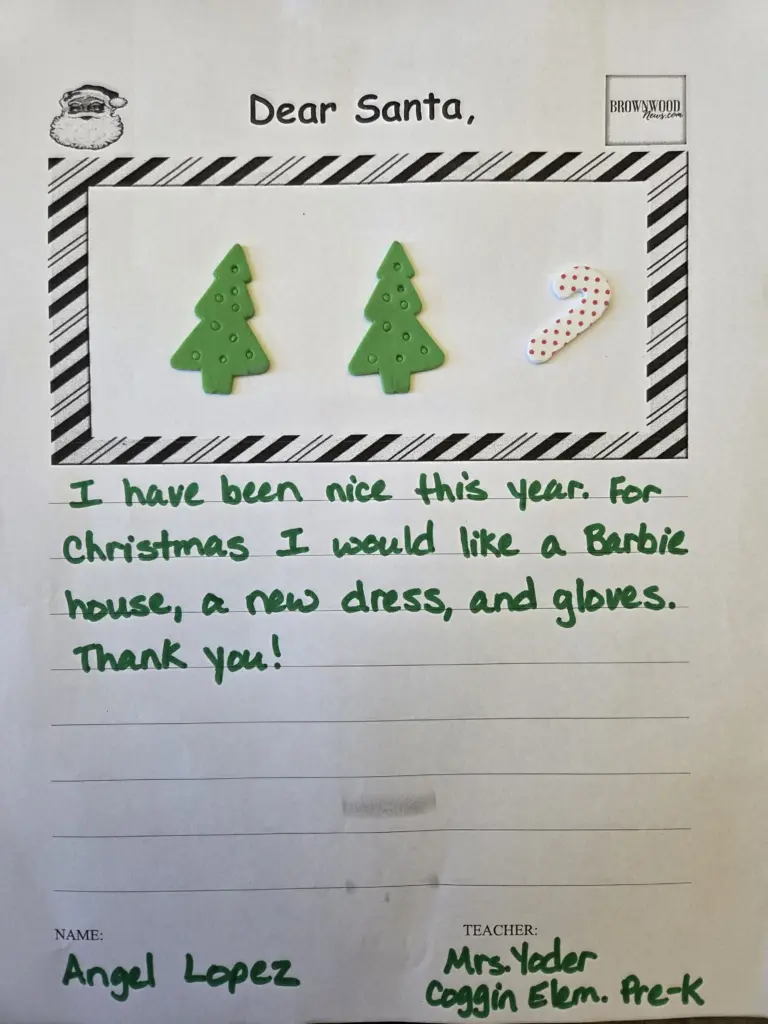 Dear Santa,
BROWNWOOD
News.com
I have been nice this year. For
Christmas I would like a Barbie
house, a new dress, and gloves.
Thank you!
NAME:
Angel Lopez
TEACHER:
Mrs. Yoder
Coggin Elem. Pre-K